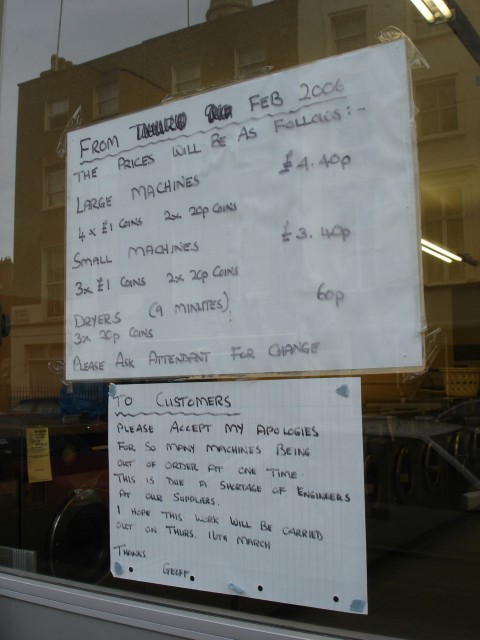 FROM FEB 2006
THE PRICES WILL BE AS FOLLOWS:-
LARGE MACHINES £4.40p
4 x £1 COINS 2x 20p COINS
SMALL MACHINES £3.40p
3x £1 COINS 2x 20p COINS
DRYERS (9 MINUTES) 60p
3x 20p COINS
PLEASE ASK ATTENDANT FOR CHANGE
TO CUSTOMERS
PLEASE ACCEPT MY APOLOGIES
FOR SO MANY MACHINES BEING
OUT OF ORDER AT ONE TIME.
THIS IS DUE A SHORTAGE OF ENGINEERS
AT OUR SUPPLIERS.
I HOPE THIS WORK WILL BE CARRIED
OUT ON THURS. 16TH MARCH
THANKS
GEOFF.